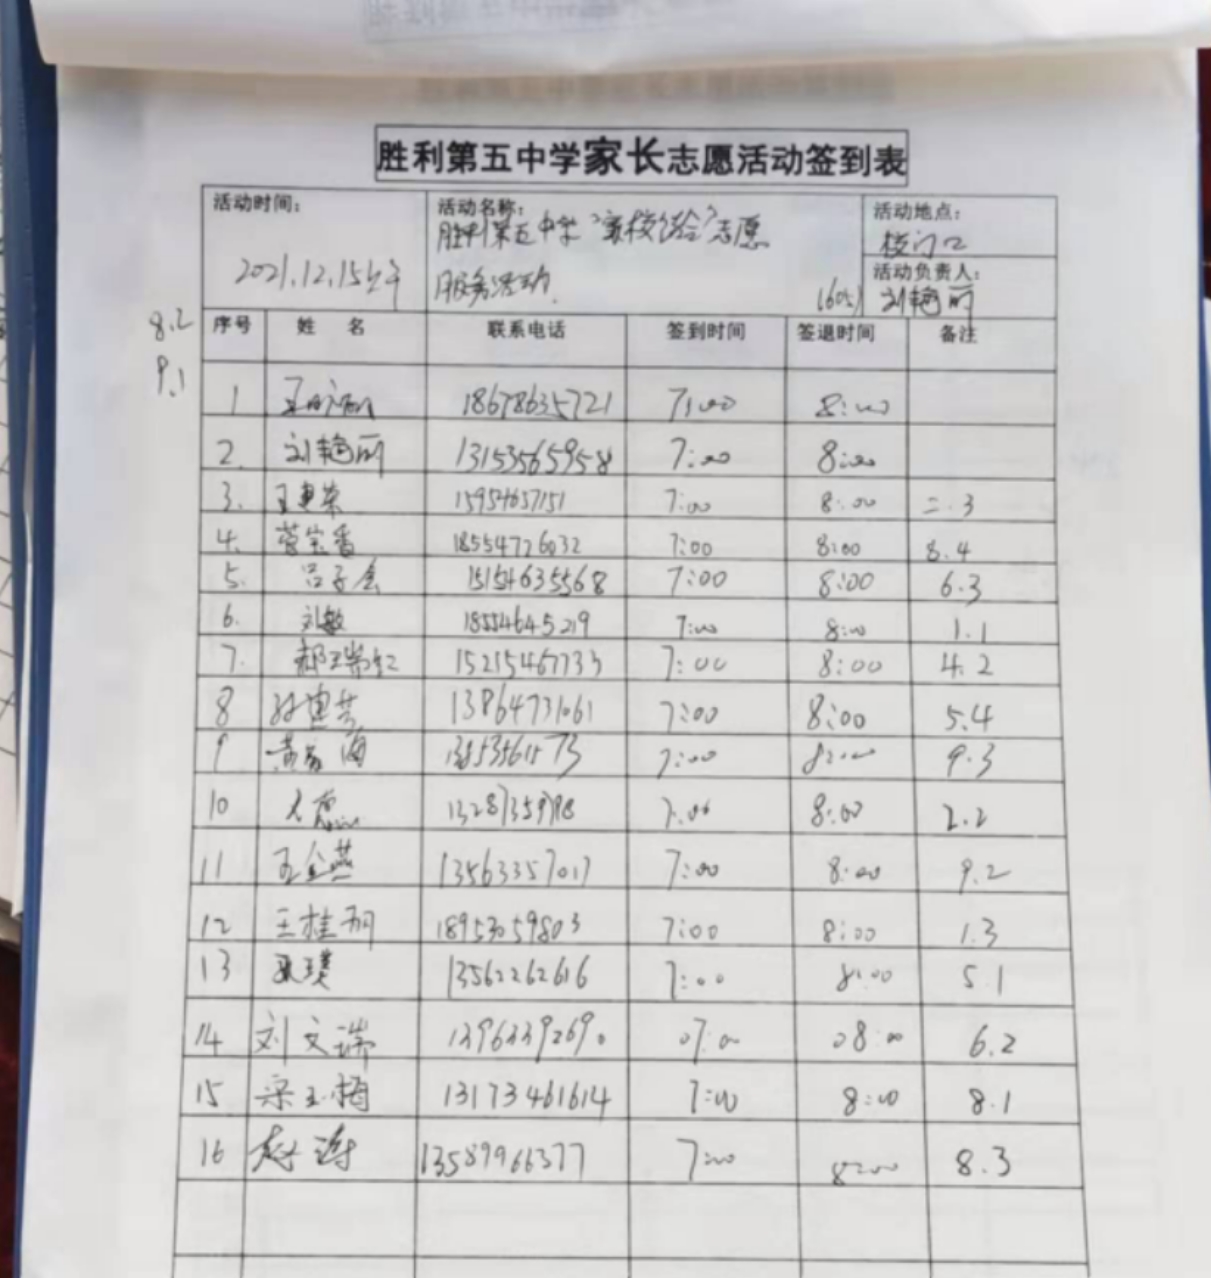 胜利第五中学家长志愿活动签到表
活动时间: 2021.12.15上午
活动名称: 胜利第五中学"家校"志愿
服务活动
活动地点: 校门口
活动负责人: 刘艳丽
8.2
9.1
序号 姓 名 联系电话 签到时间 签退时间 备注
1 18678635721 7:00 8:00
2. 刘艳丽 13153565958 7:00 8:00
3. 王惠荣 15954657151 7:00 8:00 二.3
4. 宝香 18554726032 7:00 8:00 8.4
5. 吕子会 15154635568 7:00 8:00 6.3
6. 刘敏 18554645219 7:00 8:00 1.1
7. 郝瑞红 15215467733 7:00 8:00 4.2
8 13864731061 7:00 8:00 5.4
9 黄海 7:00 8:00 9.3
10 7:00 8:00 2.2
11 王金燕 13563357017 7:00 8:00 9.2
12 王桂 18953059803 7:00 8:00 1.3
13 13562262616 7:00 8:00 5.1
14 刘文瑞 13963392690 07:00 08:00 6.2
15 宋玉梅 13173461614 7:00 8:00 8.1
16 赵 13589966377 7:00 8:00 8.3